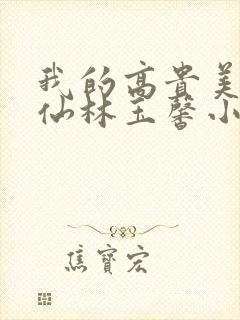 我的高贵美
仙林玉馨小
焦寳宏